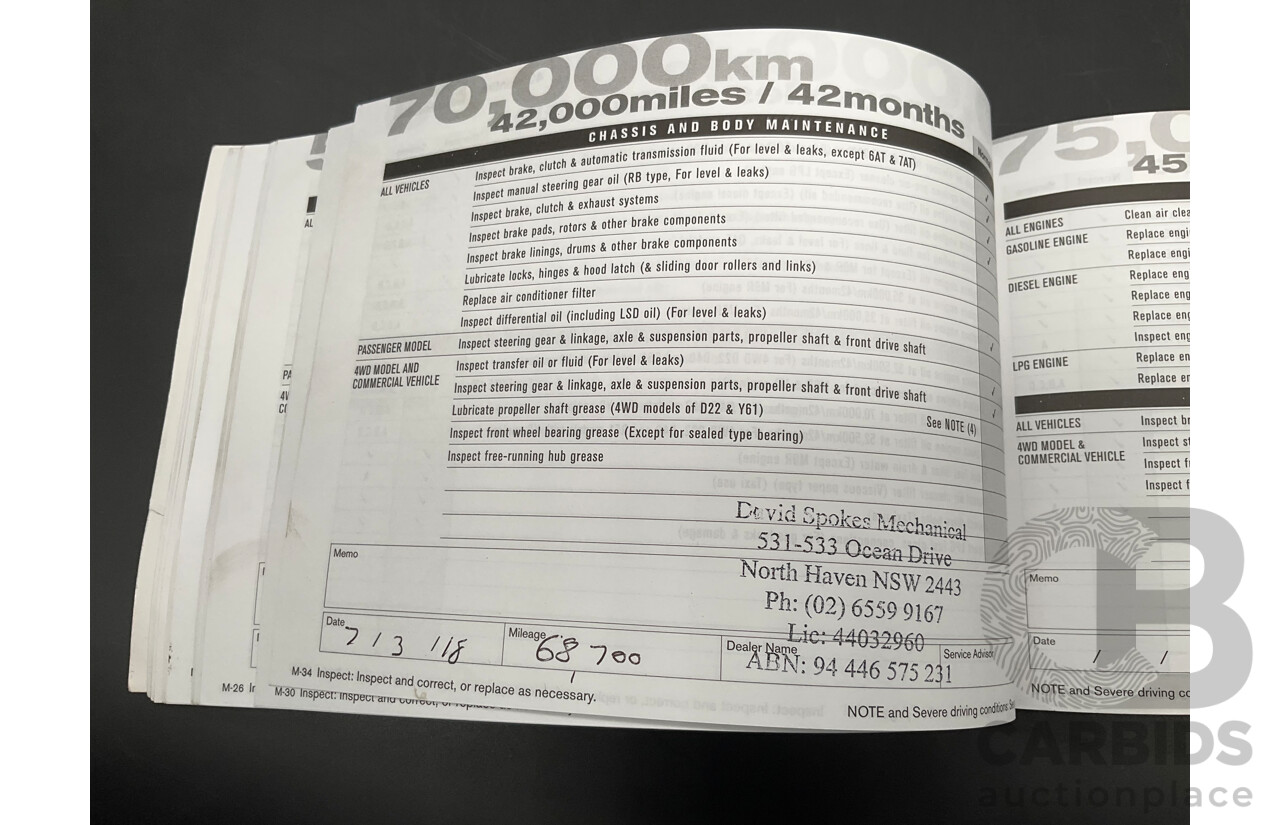 70,000km
42,000miles / 42months
CHASSIS AND BODY MAINTENANCE
ALL VEHICLES
Inspect brake, clutch & automatic transmission fluid (For level & leaks, except 6AT & 7AT)
Inspect manual steering gear oil (RB type, For level & leaks)
Inspect brake, clutch & exhaust systems
Inspect brake pads, rotors & other brake components
Inspect brake linings, drums & other brake components
Lubricate locks, hinges & hood latch (& sliding door rollers and links)
Replace air conditioner filter
Inspect differential oil (including LSD oil) (For level & leaks)
PASSENGER MODEL
Inspect steering gear & linkage, axle & suspension parts, propeller shaft & front drive shaft
4WD MODEL AND
COMMERCIAL VEHICLE
Inspect transfer oil or fluid (For level & leaks)
Inspect steering gear & linkage, axle & suspension parts, propeller shaft & front drive shaft
Lubricate propeller shaft grease (4WD models of D22 & Y61)
See NOTE (4)
Inspect front wheel bearing grease (Except for sealed type bearing)
Inspect free-running hub grease
David Spokes Mechanical
531-533 Ocean Drive
North Haven NSW 2443
Ph: (02) 6559 9167
Lic: 44032960
ABN: 94 446 575 231
Memo
Date
7/3/18
Mileage
68 700
Dealer Name
Service Advisor
M-34 Inspect: Inspect and correct, or replace as necessary.
NOTE and Severe driving conditions
M-30 Inspect: Inspect and correct, or
M-26
75,0
45
ALL ENGINES
Clean air
GASOLINE ENGINE
Replace
Replace
DIESEL ENGINE
Replace
Replace
Replace
Inspect
LPG ENGINE
Replace
Replace
ALL VEHICLES
Inspect
4WD MODEL &
COMMERCIAL VEHICLE
Inspect
Inspect
Inspect
Memo
Date
/ /
NOTE and Severe driving
CB
CARBIDS
auctionplace